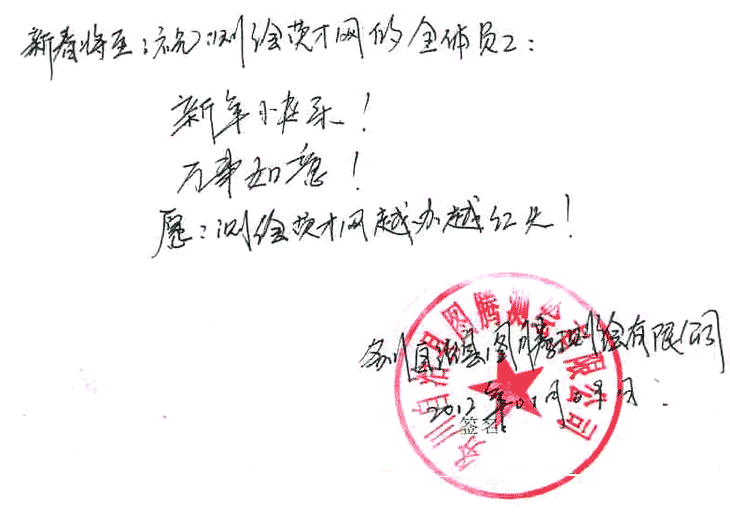 新春将至:祝测绘英才网的全体员工:
新年快乐!
万事如意!
愿:测绘英才网越办越红火!
务川自治县图腾测绘有限公司
2012年01月09日
签名:
务川自治县图腾测绘有限公司